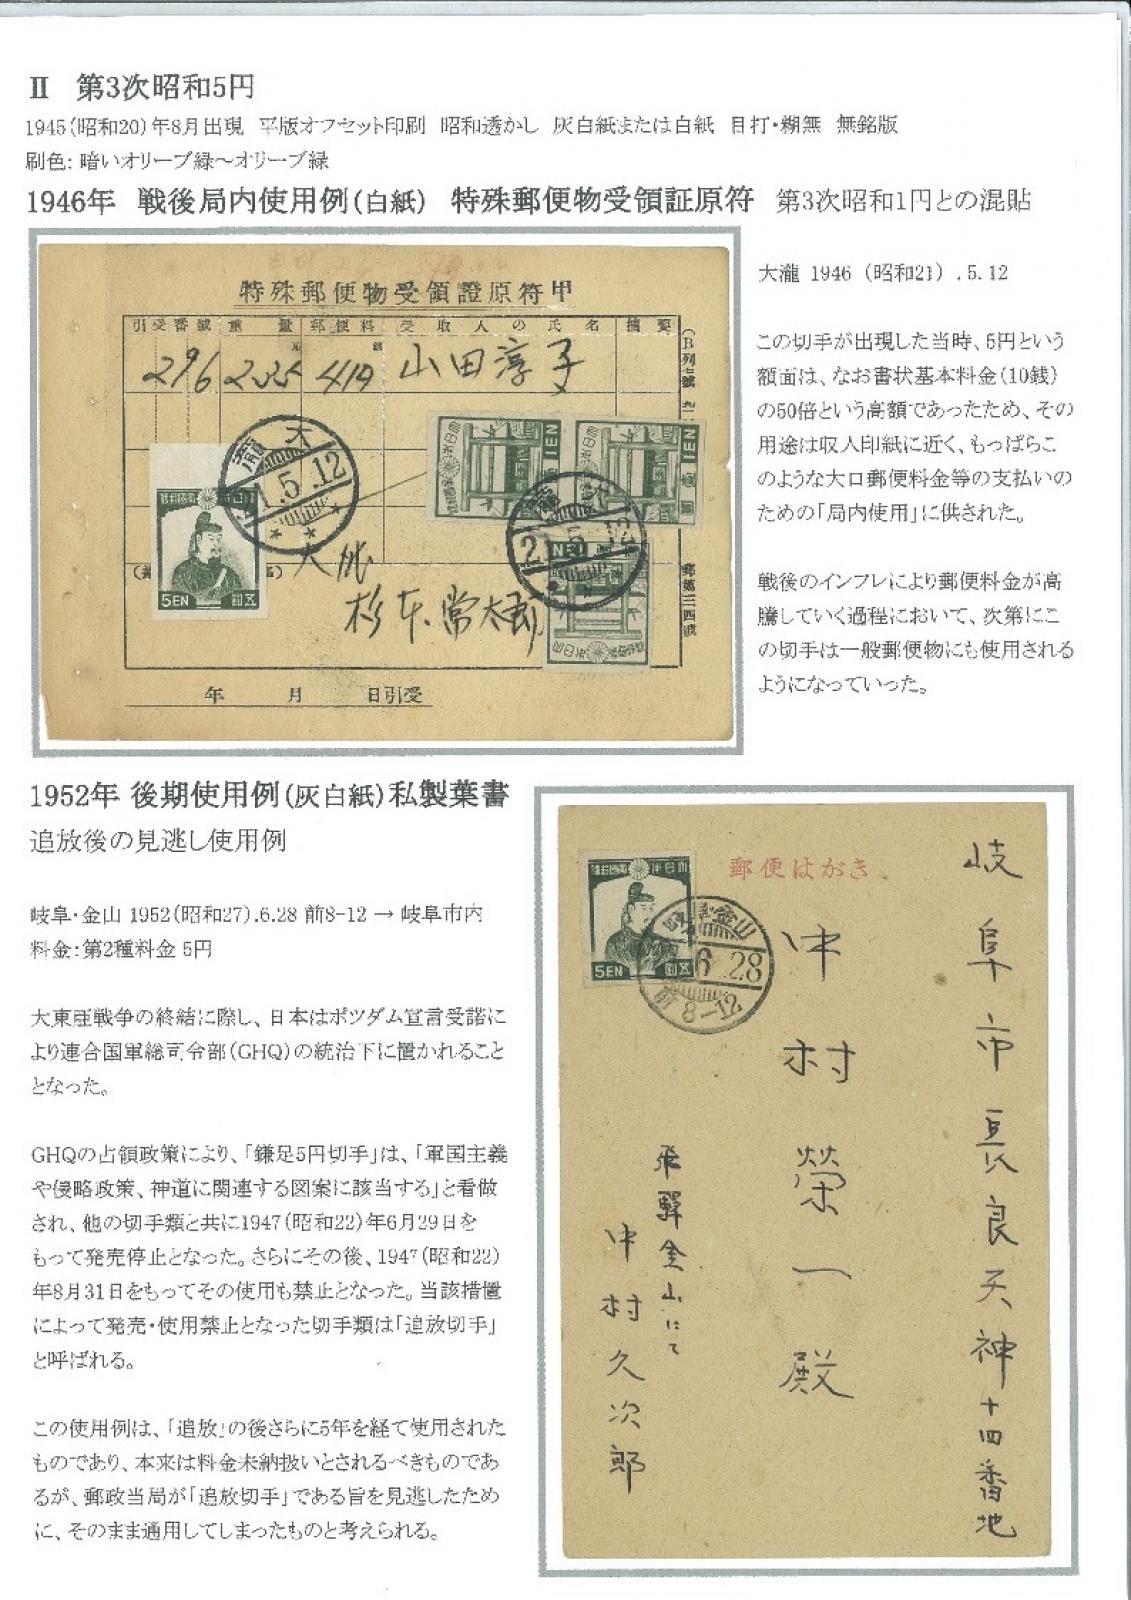 Ⅱ 第3次昭和5円
1945(昭和20)年8月出現 平版オフセット印刷 昭和透かし 灰白紙または白紙 目打・糊無 無銘版
刷色: 暗いオリーブ緑～オリーブ緑
1946年 戦後局内使用例(白紙) 特殊郵便物受領証原符 第3次昭和1円との混貼
特殊郵便物受領證原符甲
引受番號 重量 郵便料 受取人の氏名 摘要
296 225 419 山田淳子
大瀧
21.5.12
5EN 圓五
大瀧
21.5.12
1EN
杉本常太郎
年 月 日引受
大瀧 1946 (昭和21) .5.12
この切手が出現した当時、5円という
額面は、なお書状基本料金(10銭)
の50倍という高額であったため、その
用途は収入印紙に近く、もっぱらこ
のような大口郵便料金等の支払いの
ための「局内使用」に供された。
戦後のインフレにより郵便料金が高
騰していく過程において、次第にこ
の切手は一般郵便物にも使用される
ようになっていった。
1952年 後期使用例(灰白紙)私製葉書
追放後の見逃し使用例
岐阜・金山 1952(昭和27).6.28 前8-12 → 岐阜市内
料金:第2種料金 5円
大東亜戦争の終結に際し、日本はポツダム宣言受諾に
より連合国軍総司令部(GHQ)の統治下に置かれること
となった。
GHQの占領政策により、「鎌足5円切手」は、「軍国主義
や侵略政策、神道に関連する図案に該当する」と看做
され、他の切手類と共に1947(昭和22)年6月29日を
もって発売停止となった。さらにその後、1947(昭和22)
年8月31日をもってその使用も禁止となった。当該措置
によって発売・使用禁止となった切手類は「追放切手」
と呼ばれる。
この使用例は、「追放」の後さらに5年を経て使用された
ものであり、本来は料金未納扱いとされるべきものであ
るが、郵政当局が「追放切手」である旨を見逃したため
に、そのまま通用してしまったものと考えられる。
郵便はがき
5EN 圓五
金山
6.28
前8-12
岐阜市長良天神十四番地
中村榮一殿
飛騨金山にて
中村久次郎